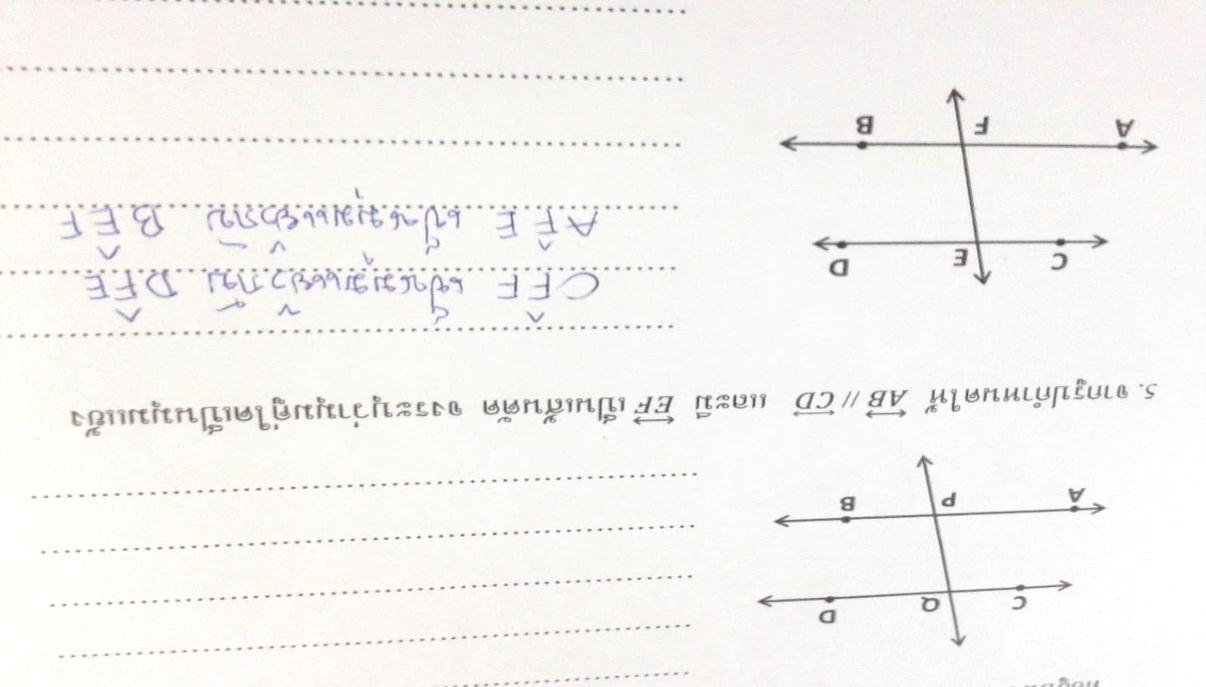 C Q D
A P B
5. จากรูปกำหนดให้ AB // CD และมี EF เป็นเส้นตัด จงระบุว่ามุมคู่ใดเป็นมุมแย้ง
C E D
A F B
CÊF เป็นมุมแย้งกับ DF̂E
AF̂E เป็นมุมแย้งกับ BÊF